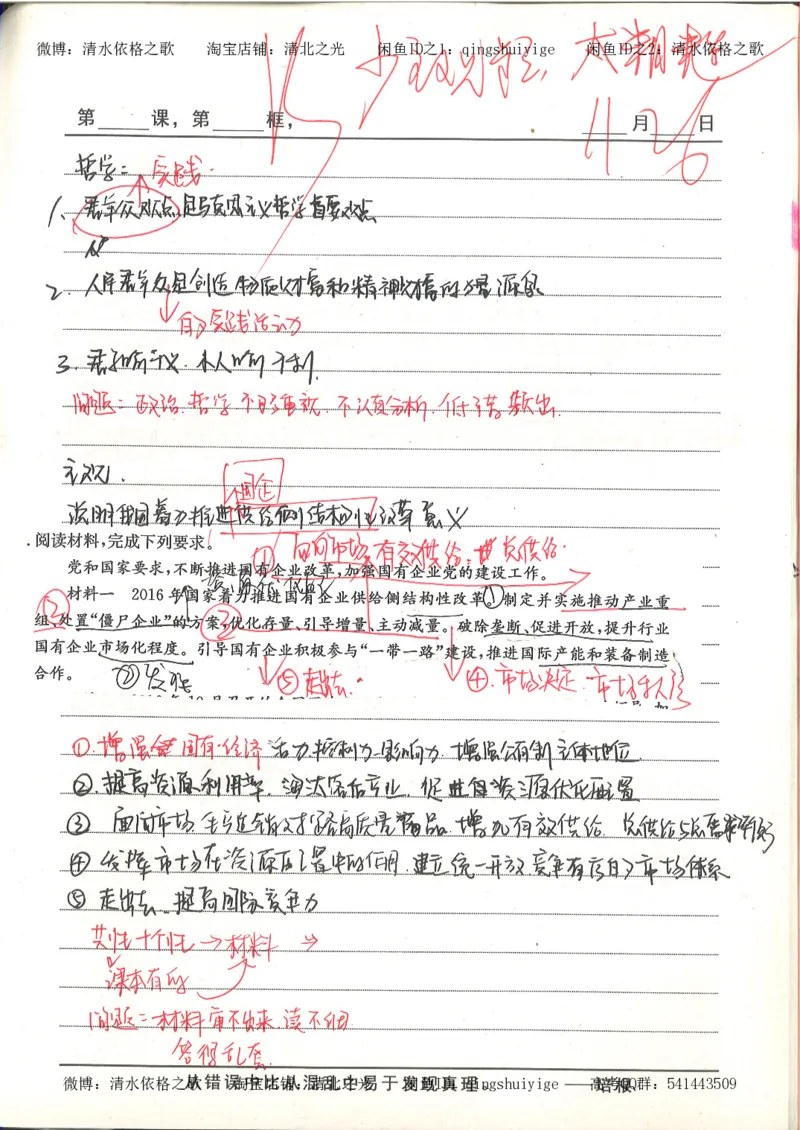 微博：清水依格之歌 淘宝店铺：清北之光 闲鱼ID之1：qingshuiyige 闲鱼ID之2：清水依格之歌
第 课，第 框，
11月26日
哲学： 实践
1、群众观点是马克思主义哲学首要观点
2. 人民群众是创造物质财富和精神财富的 源泉
的实践活动
3.
问题：政治.哲学不够重视.不认真分析.
主观1.
国企
说明我国着力推进供给侧结构性改革意义
.阅读材料，完成下列要求。
① 面向市场 有效供给
党和国家要求，不断推进国有企业改革，加强国有企业党的建设工作。
材料一 2016年国家着力推进国有企业供给侧结构性改革。①制定并实施推动产业重
组、处置“僵尸企业”的方案，优化存量、引导增量、主动减量。破除垄断、促进开放，提升行业
国有企业市场化程度。引导国有企业积极参与“一带一路”建设，推进国际产能和装备制造
合作。
②发挥 ⑤走出去. ④.市场决定.
①.增强 国有经济 活力控制力影响力.增强公有制主体地位
②.提高资源利用率.淘汰落后产业.促进 资源优化配置
③ 面向市场 生产适销对路高质量 品.增加有效供给.
④ 发挥市场在资源配置中的作用.建立统一开放竞争有序的市场体系
⑤ 走出去.提高国际竞争力
共性+个性→材料 ⇒
课本有的
问题：材料审不出来 读不细
答得乱套
微博：清水依格之歌 淘宝店铺：清北之光 qingshuiyige QQ群：541443509
从错误中比从混乱中易于发现真理。——培根